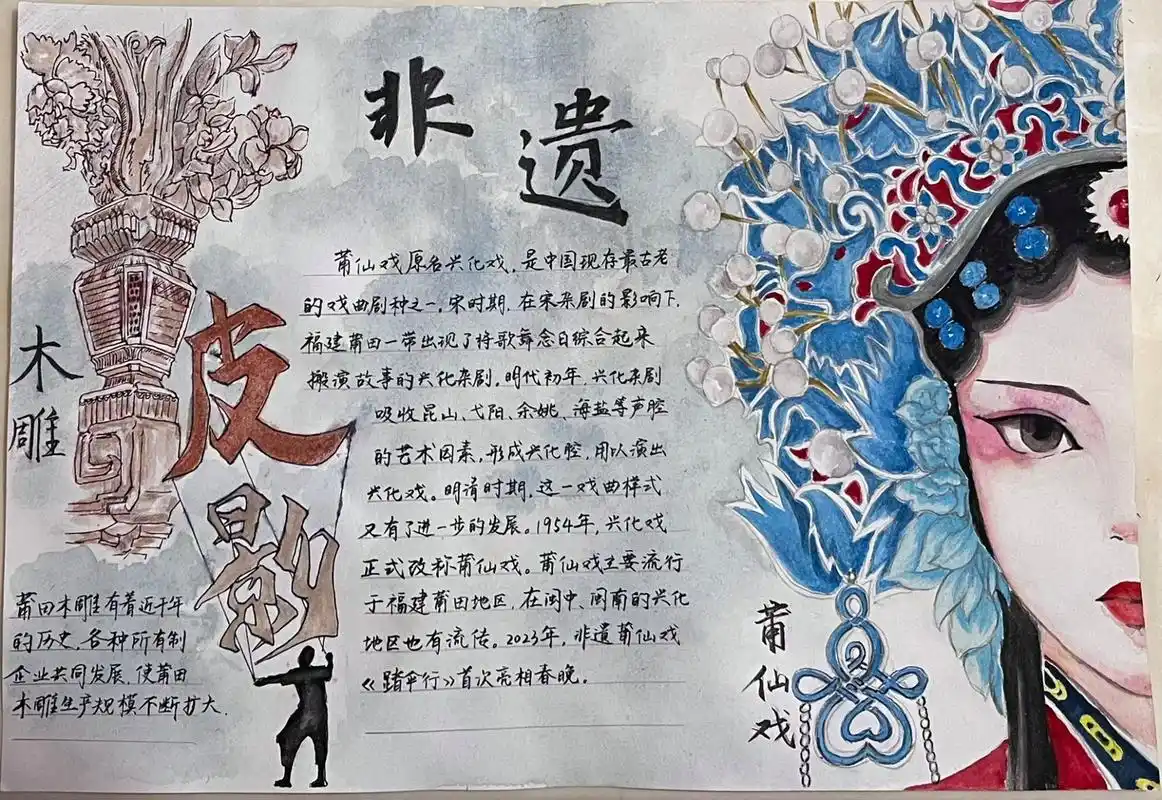 非遗
莆仙戏原名兴化戏,是中国现存最古老
的戏曲剧种之一。宋时期,在宋杂剧的影响下,
福建莆田一带出现了将歌舞念白综合起来
搬演故事的兴化杂剧。明代初年,兴化杂剧
吸收昆山、弋阳、余姚、海盐等声腔
的艺术因素,形成兴化腔,用以演出
兴化戏。明清时期,这一戏曲样式
又有了进一步的发展。1954年,兴化戏
正式改称莆仙戏。莆仙戏主要流行
于福建莆田地区,在闽中、闽南的兴化
地区也有流传。2023年,非遗莆仙戏
《踏伞行》首次亮相春晚。
木雕
皮影
莆田木雕有着近千年
的历史,各种所有制
企业共同发展,使莆田
木雕生产规模不断扩大.
莆仙戏